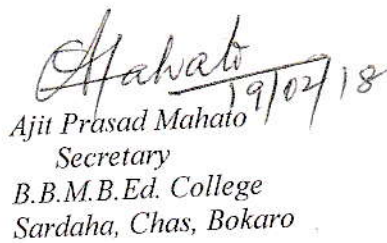 AMahato
19/02/18
Ajit Prasad Mahato
Secretary
B.B.M.B.Ed. College
Sardaha, Chas, Bokaro